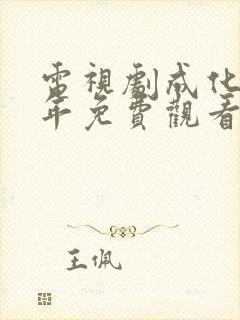 電視劇成化
年免費觀看
王佩